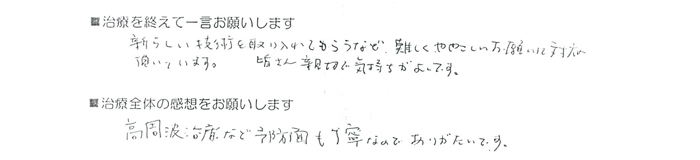 ■治療を終えて一言お願いします
新らしい技術を取り入れてもらうなど、難しくややこしいお願いに対応
頂いています。 皆さん親切で気持ちがよいです。
■治療全体の感想をお願いします
高周波治療など予防面も丁寧なので ありがたいです。